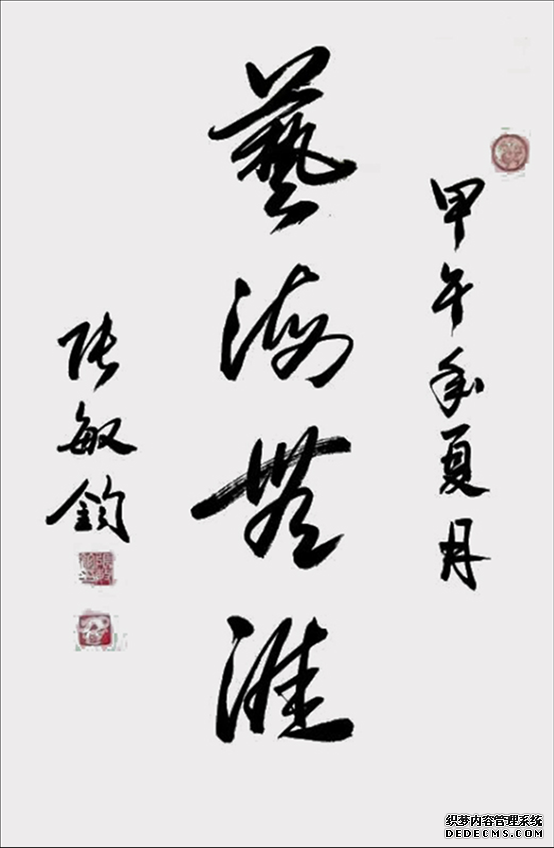 甲午年夏月
藝海無涯
張敏鈞
织梦内容管理系统
DEDECMS.COM